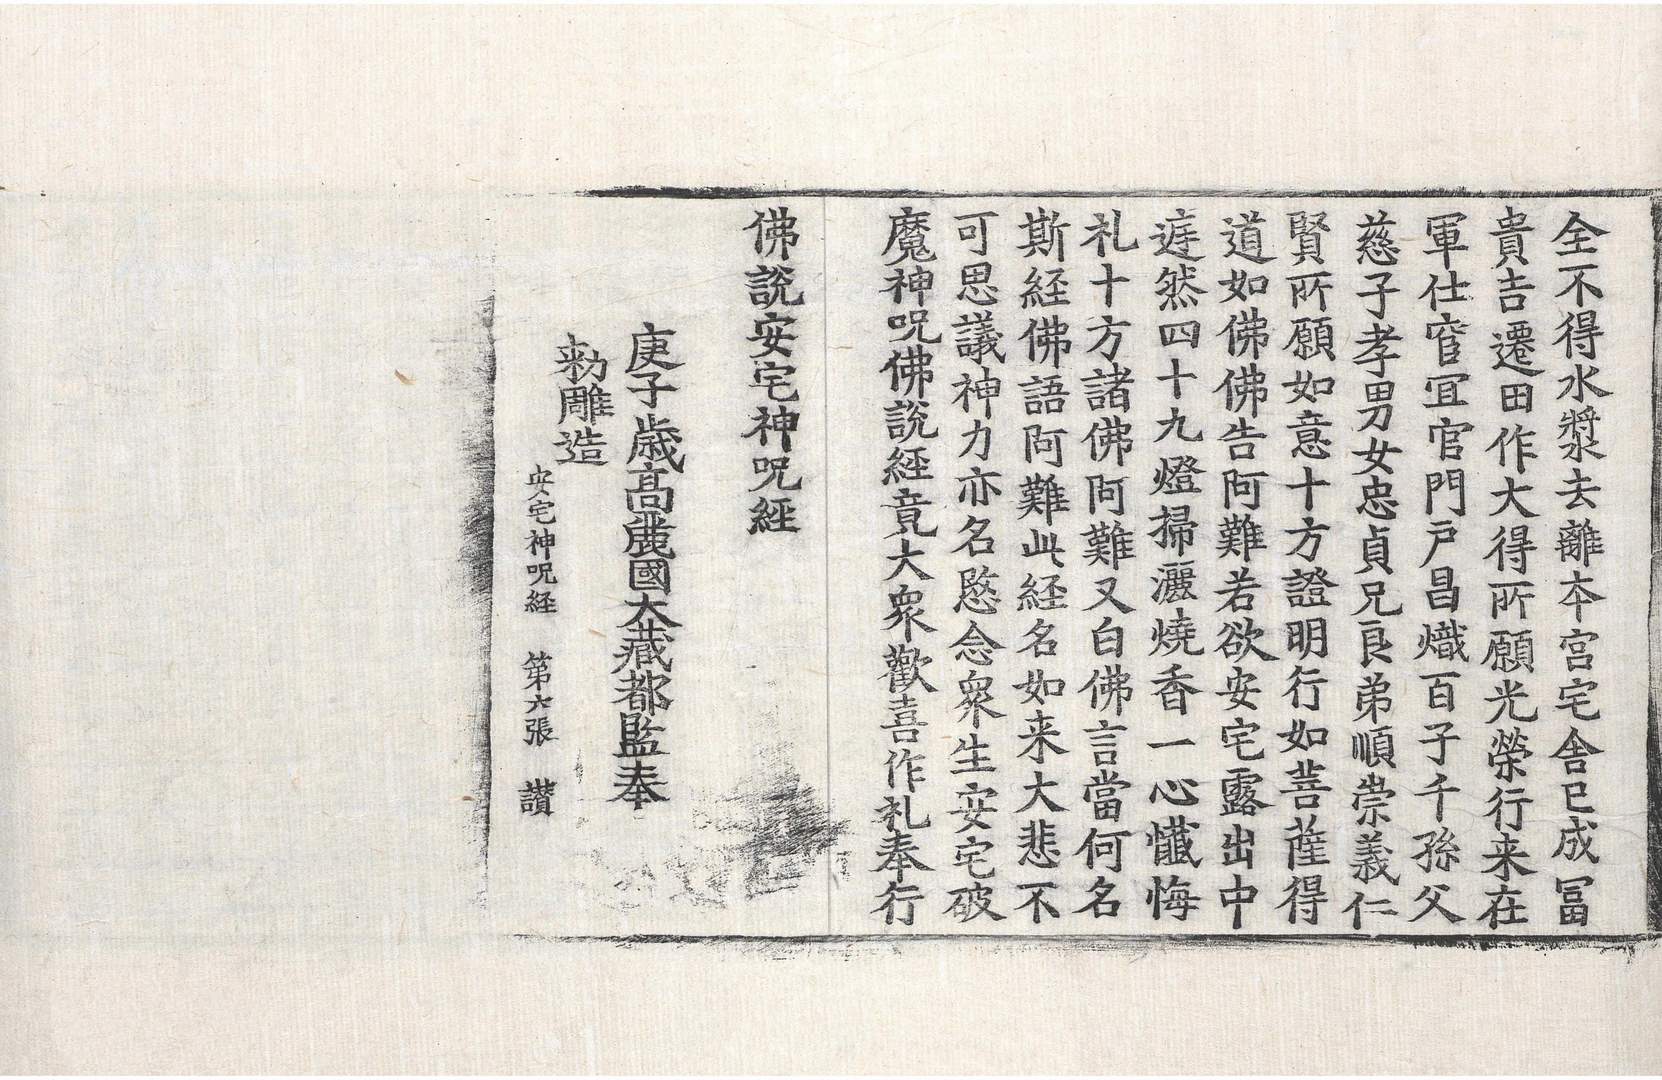 全不得水漿去離夲宮宅舍已成冨
貴吉遷田作大得所願光榮行来在
軍仕窅冝官門戶昌熾百子千孫父
慈子孝男女忠貞兄良弟順崇義仁
賢所願如意十方證明行如菩薩得
道如佛佛告阿難若欲安宅露出中
庭然四十九燈掃灑燒香一心懺悔
礼十方諸佛阿難又白佛言當何名
斯經佛語阿難此経名如来大悲不
可思議神力亦名愍念衆生安宅破
魔神呪佛說經竟大衆歡喜作礼奉行
佛說安宅神呪経
庚子歳高麗國大藏都監奉
勑雕造
安宅神呪経 第六張 讃